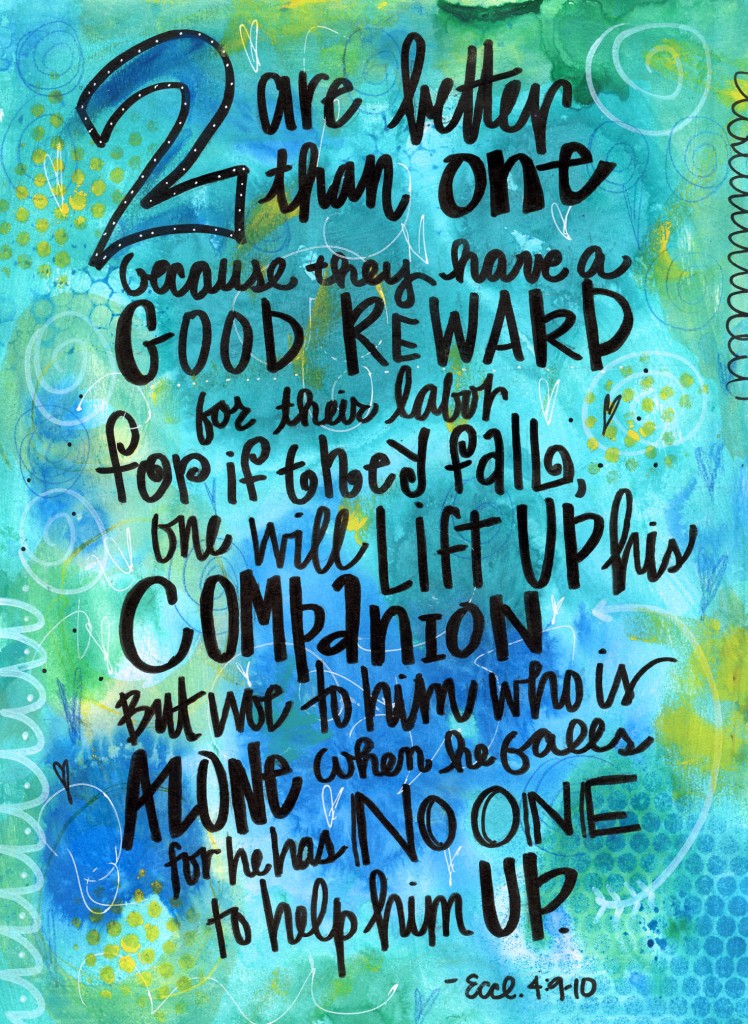 2 are better
than one
because they have a
GOOD REWARD
for their labor
for if they fall,
one will LIFT UP his
COMPANION
But woe to him who is
ALONE when he falls
for he has NO ONE
to help him UP.
- Eccl. 4:9-10